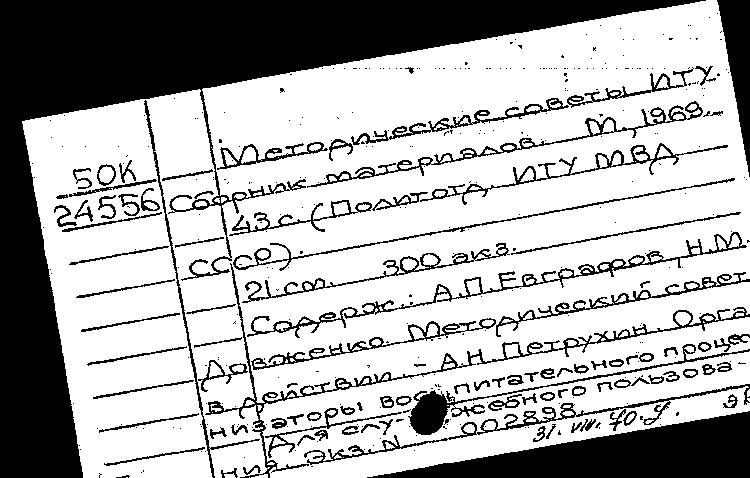 Методические советы ИТУ.
50К
Сборник материалов. М., 1969.
24556
43 с. (Политотд. ИТУ МВД
СССР).
21 см. 300 экз.
Содерж.: А.П.Евграфов, Н.М.
Довженко. Методический совет
в действии. – А.Н.Петрухин. Орга
низаторы вос питательного процес
Для слу- жебного пользова-
ния. Экз. N 002898.
31. 70.